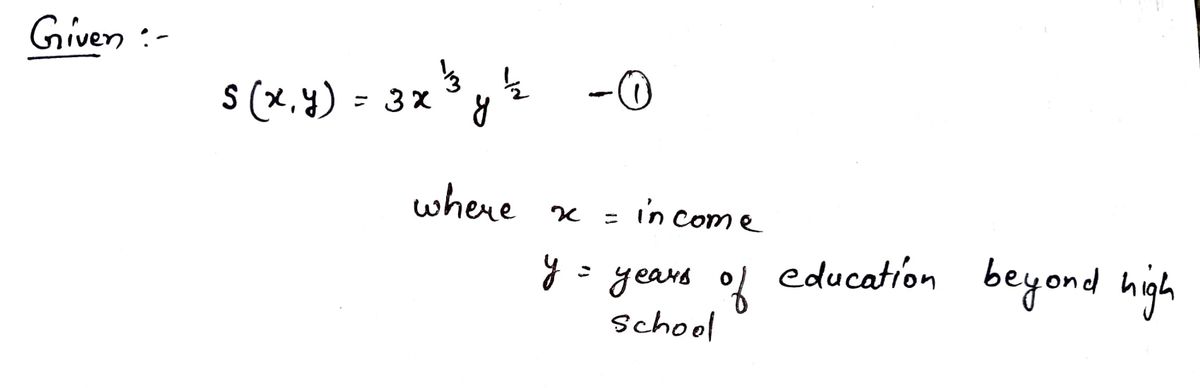 Given :-
S(x,y) = 3x^{1/3} y^{1/2} -①
where x = income
y = years of education beyond high
school